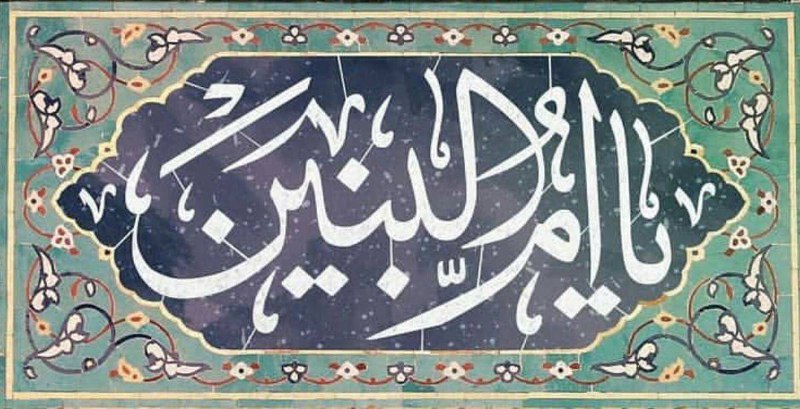 یا اُمَّ البَنین